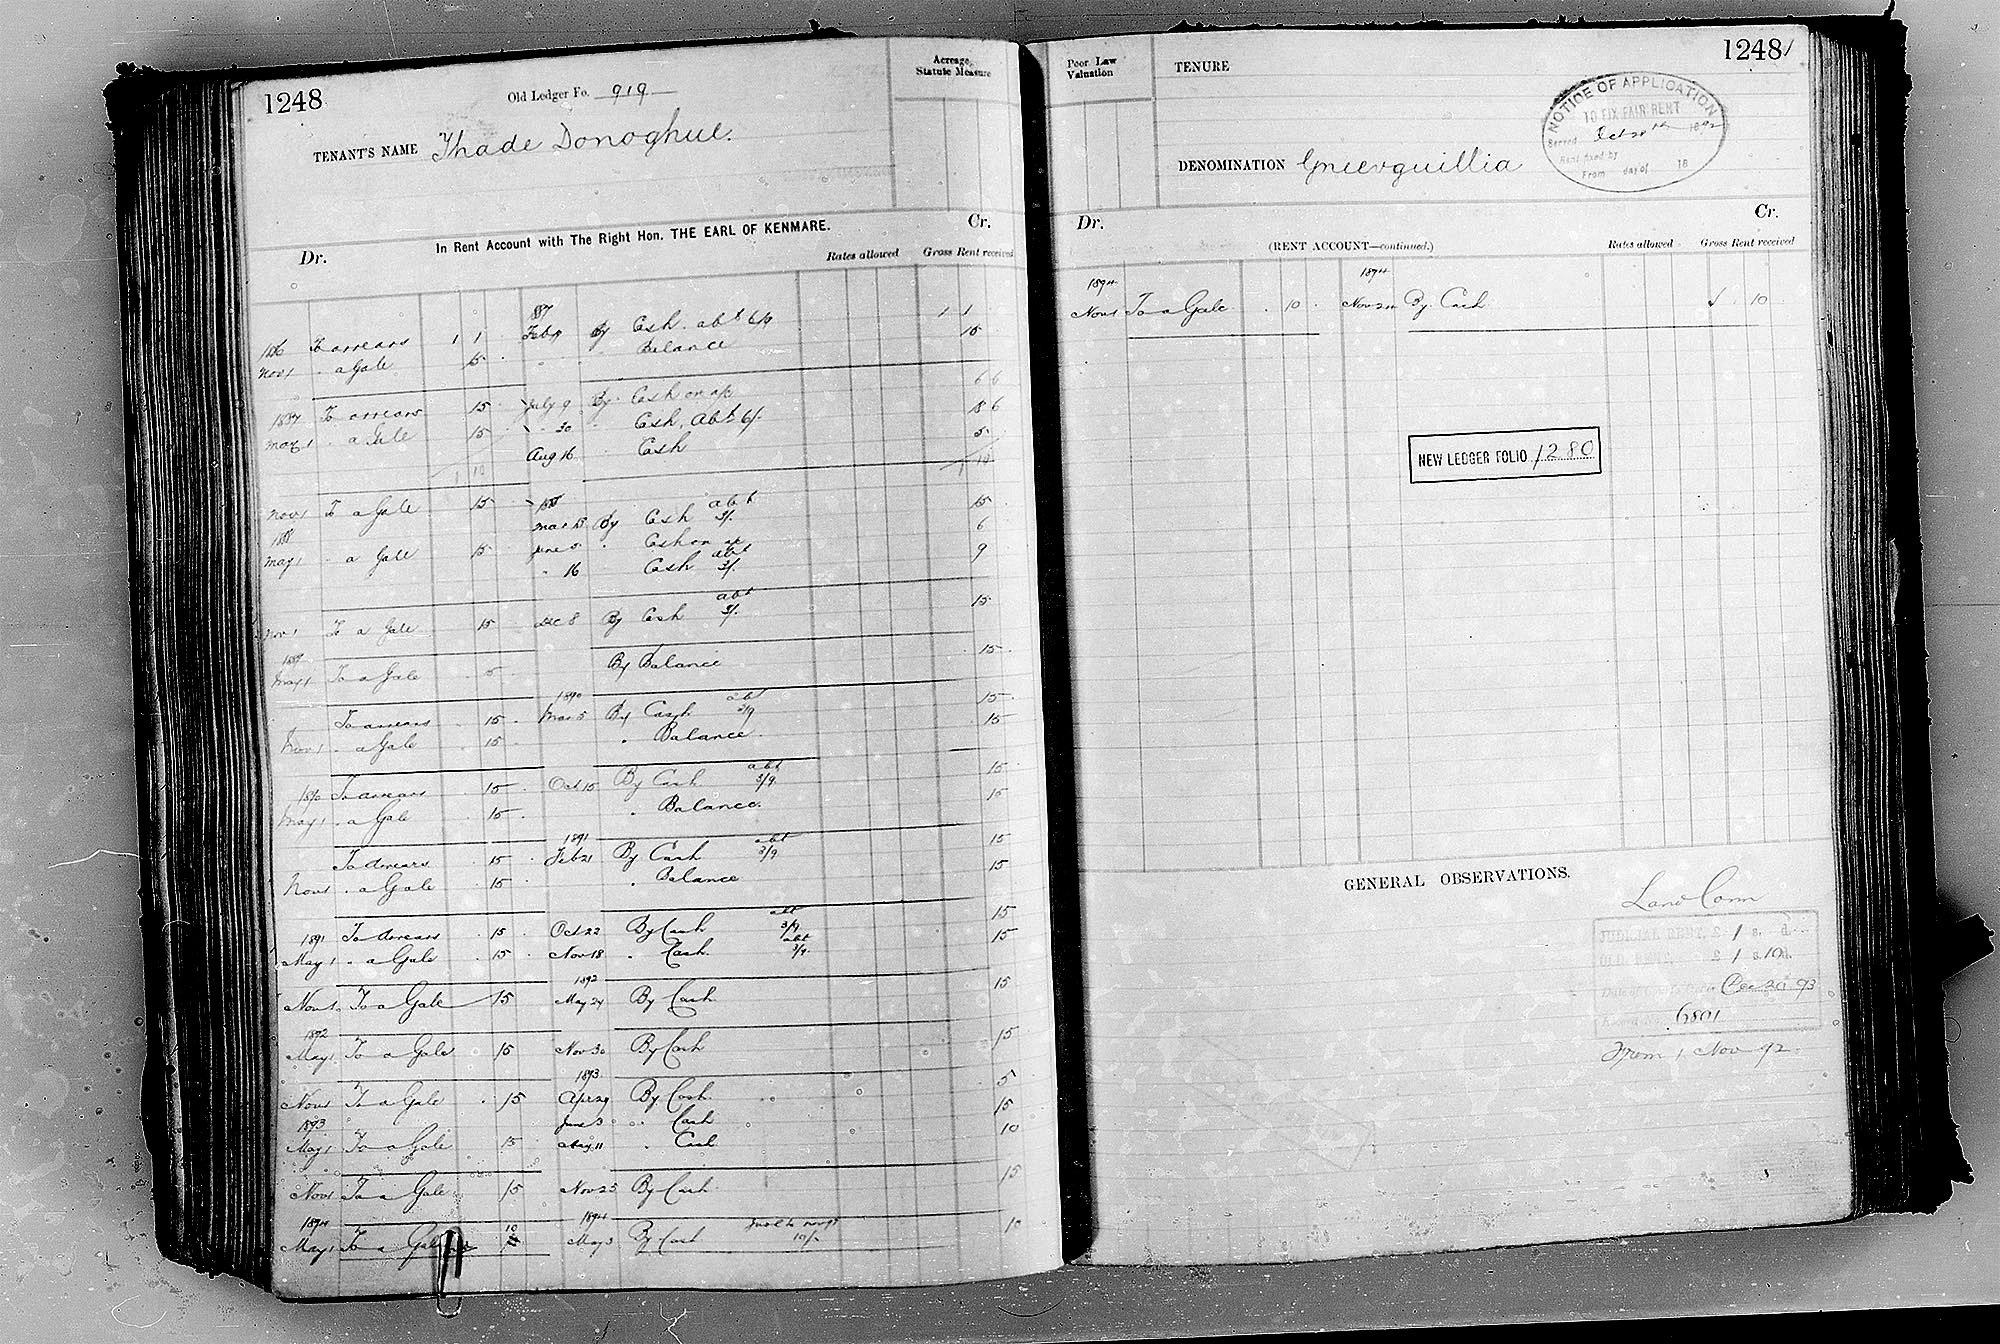 1248
Old Ledger Fo. 919
Acreage
Statute Measure
TENANT'S NAME Thade Donoghue.
In Rent Account with The Right Hon. THE EARL OF KENMARE.
Dr. Cr.
Rates allowed Gross Rent received
1887
1886 To arrears 1 1 Feb 9 By Cash. abt 6/9 1 1
Nov 1 " a Gale 15 " " Balance 15
1887 To arrears 15 July 9 By Cash on a/c 6 6
May 1 " a Gale 15 " 30 " Cash, Abt 6/. 18 6
Aug 16 " Cash 5
1 10 1 10
Nov 1 To a Gale 15 1888 abt 15
1888 Mar 13 By Cash 3/.
May 1 " a Gale 15 June 5 " Cash on a/c 6
" 16 Cash abt 3/. 9
Nov 1 To a Gale 15 Dec 8 By Cash abt 3/. 15
1889
May 1 To a Gale 15 By Balance 15
1890
To arrears 15 Mar 5 By Cash abt 3/9 15
Nov 1 " a Gale 15 " Balance 15
1890 To arrears 15 Oct 15 By Cash abt 3/9 15
May 1 " a Gale 15 " Balance. 15
1891
To arrears 15 Feb 21 By Cash abt 3/9 15
Nov 1 " a Gale 15 " Balance 15
1891 To arrears 15 Oct 22 By Cash abt 3/9 15
May 1 " a Gale 15 Nov 18 " Cash abt 3/9. 15
1892
Nov 1 To a Gale 15 May 24 By Cash 15
1892
May 1 To a Gale 15 Nov 30 By Cash 15
1893
Nov 1 To a Gale 15 Apr 29 By Cash 5
1893 June 3 " Cash 15
May 1 To a Gale 15 Aug 11 " Cash 10
Nov 1 To a Gale 15 Nov 25 By Cash 15
1894 10 1894
May 1 To a Gale May 3 By Cash 10/- 10
1248
Poor Law
Valuation
TENURE
NOTICE OF APPLICATION
TO FIX FAIR RENT
Served Oct 28th 1892
Rent fixed by
From day of 18
DENOMINATION Gneevguillia
Dr. Cr.
(RENT ACCOUNT—continued.)
Rates allowed Gross Rent received
1894 1894
Nov 1 To a Gale 10 Nov By Cash 10
NEW LEDGER FOLIO 1280
GENERAL OBSERVATIONS.
Land Com
JUDICIAL RENT, £ 1 s. d.
OLD RENT, £ 1 s. 10 d.
Dec 20 93
6801
From 1 Nov 92.